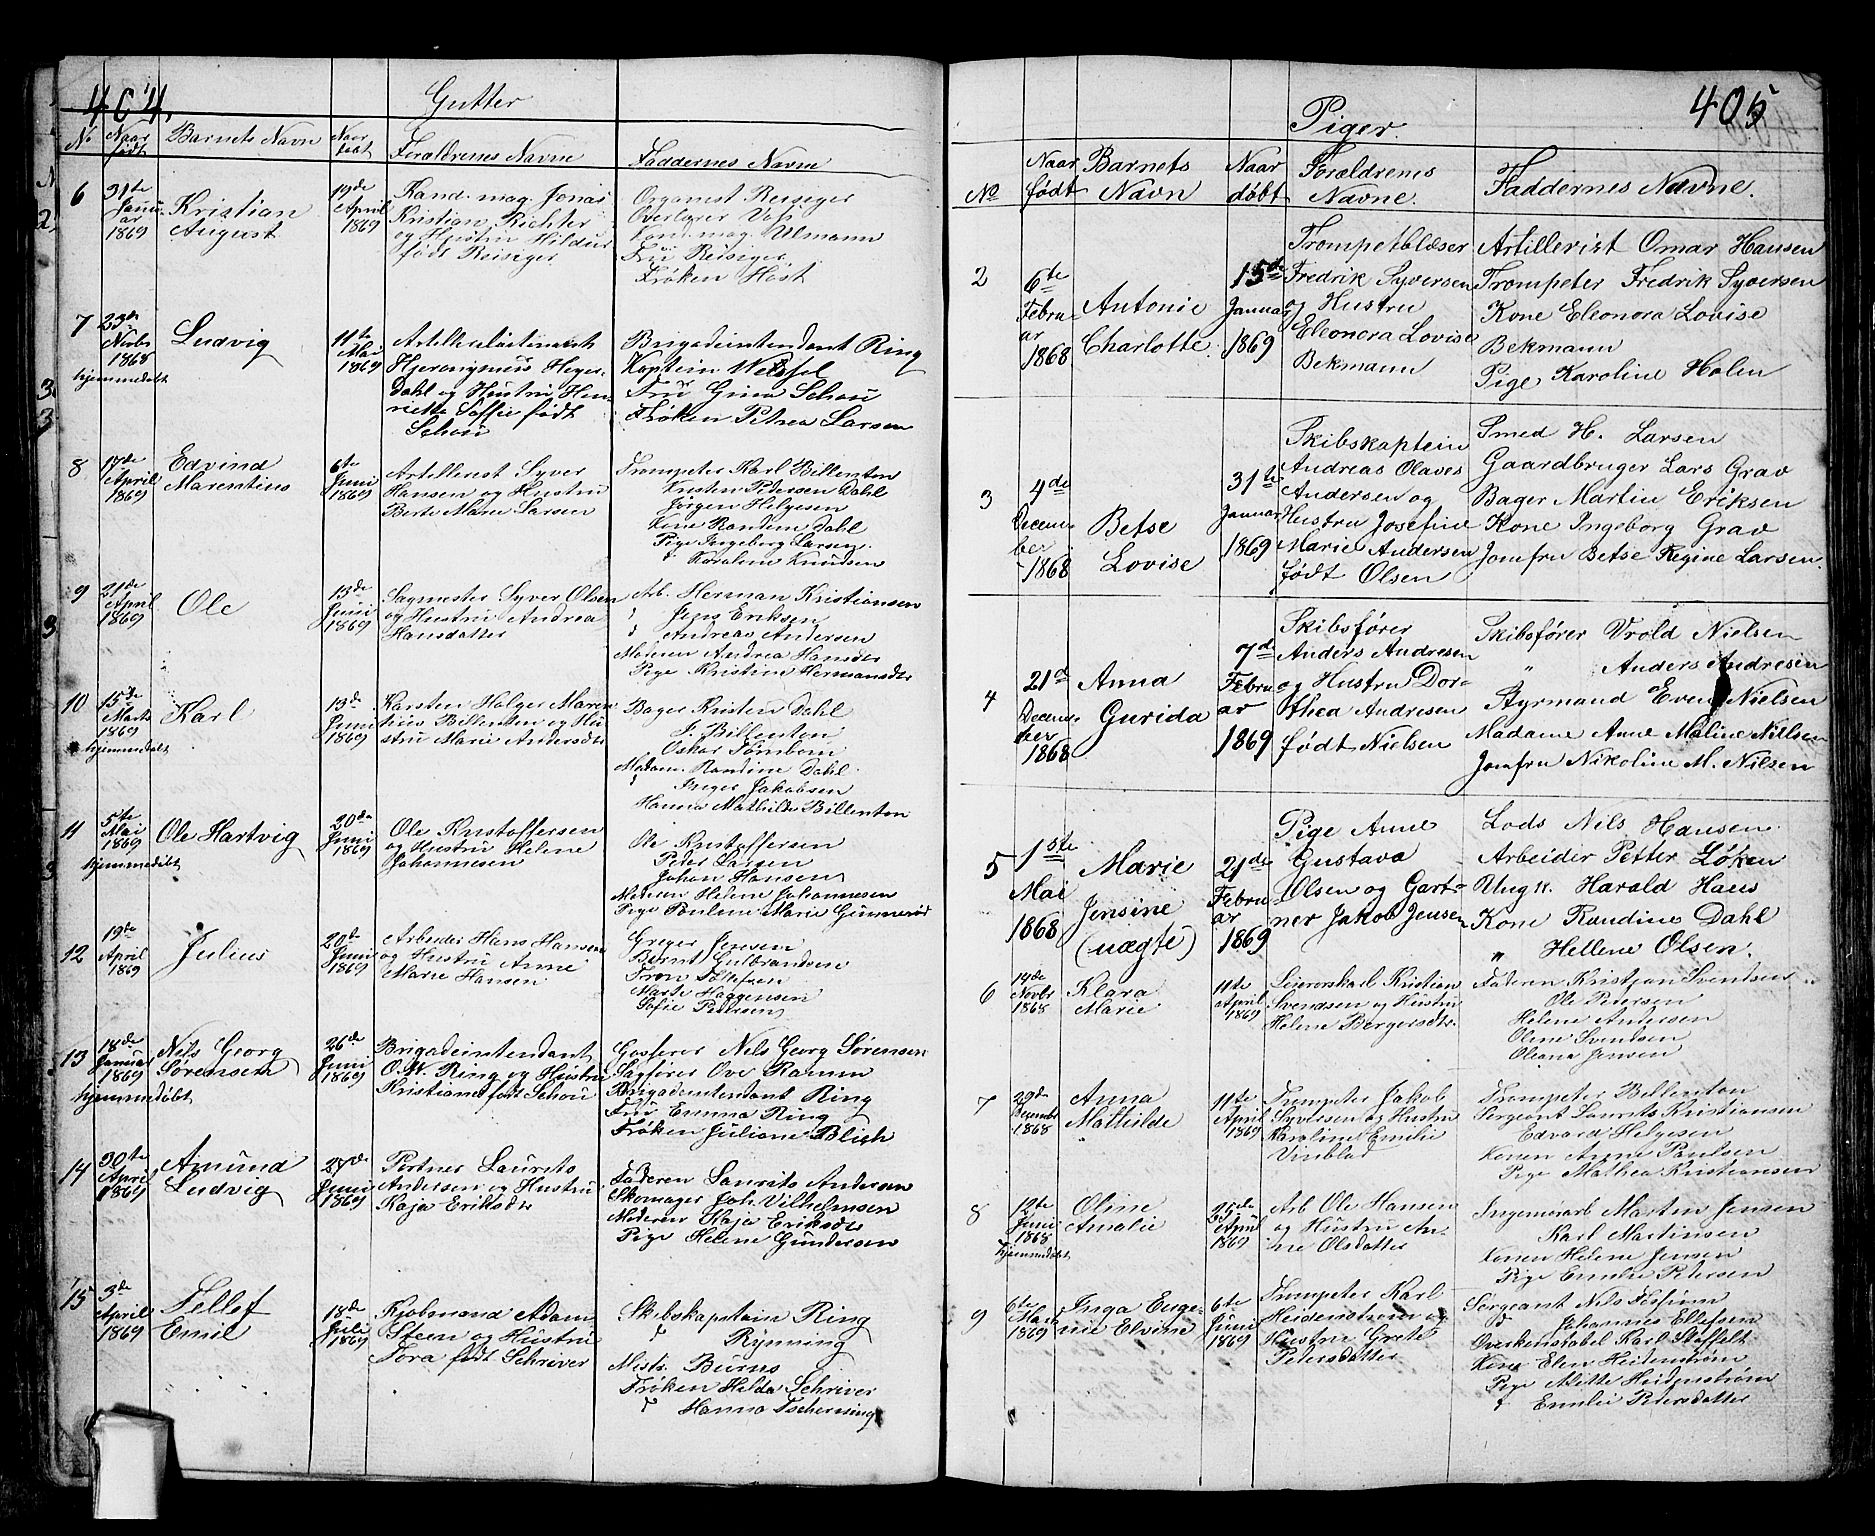 404.
Gutter
No Naar født Barnets Navn Naar døbt Forældrenes Navne Faddernes Navne
6 21te Januar 1869
Kristian August
19de April 1869
Kand. mag. Jonas
Kristian Richter
og Hustru Hildur
født Reisiger
Organist Reisiger
Overlærer Vafs
Kand. mag. Ulmann
Frü Reisiger
Frøken Høst
7 23de Novbr 1868
hjemmedøbt
Ludvig
11te Mai 1869
Hjeronymus Heyer-
Dahl og Hustru Hen-
riette Soffie født
Schou
Brigadeintendant Ring
Kaptein
Frü Gina Schou
Frøken Petrea Larsen
8 17de April 1869
Edvind
Marentius
6te Juni 1869
Artillerist Syver
Hansen og Hustru
Berte Marie Larsen
Trompeter Karl Billenton
Kristen Pedersen Dahl
Jørgen Helgesen
Kone Randine Dahl
Pige Ingeborg Larsen
Karoline Knudsen
9 21de April 1869
Ole
13de Juni 1869
Sagmester Syver Olsen
og Hustru Andrea
Hansdatter
Arb. Herman Kristiansen
Jens Eriksen
Andreas Andersen
Moderen Andrea Hansdtr
Pige Kristine Hermansdtr
10 15de Marts 1869
hjemmedøbt
Karl
13de Juni 1869
Karsten Holger Maren-
tius Billenton og Hu-
stru Marie Andersdtr
Bager Kristen Dahl
J. Billenton
Oskar Tømbom
Madam. Randine Dahl
Inger Jakobsen
Hanna Mathilde Billenton
11 5te Mai 1869
hjemmedøbt
Ole Hartvig
20de Juni 1869
Ole Kristoffersen
og Hustru Helene
Johannesen
Ole Kristoffersen
Peter Larsen
Johan Hansen
Moderen Helene Johannesen
Pige Pauline Marie Gunnerød
12 19de April 1869
Julius
20de Juni 1869
Arbeider Hans Hansen
og Hustru Anne
Marie Hansen
Greger Jensen
Bernt Gulbrandsen
Tron Tollefsen
Marte Haagensen
Sofie Pedersen
13 18de Januar 1869
hjemmedøbt
Nils Georg
Sørensen
26de Juni 1869
Brigadeintendant
O. W. Ring og Hustru
Kristiane født Schou
Nils Georg Sørensen
Sagfører Ove Ramm
Brigadeintendant Ring
Frü Emma Ring
Frøken Juliane Blich
14 30te April 1869
Amund
Ludvig
27de Juni 1869
Portner Laurits
Andersen og Hustru
Kaja Eriksdtr
Faderen Laurits Andersen
Skomager Joh. Vilhelmsen
Moderen Kaja Eriksdtr
Pige Helene Gundersen
15 3de April 1869
Tellef
Emil
18de Juli 1869
Kjøbmand Adam
Steen og Hustru
Tora født Schriver
Skibskaptein Ring
Rynning
Burns
Frøken Hilda Schriver
Hanna Tscherning
405
Piger.
No Naar født Barnets Navn Naar døbt Forældrenes Navne. Faddernes Navne.
2 6te Februar 1868
Antonie
Charlotte.
15de Januar 1869
Trompetblæser
Fredrik Syversen
og Hustru
Eleonora Lovise
Bekmann
Artillerist Omar Hansen
Trompeter Fredrik Syversen
Kone Eleonora Lovise
Bekmann
Pige Karoline Holen
3 4de December 1868
Betse
Lovise
31te Januar 1869
Skibskaptein
Andreas Olaves
Andersen og
Hustru Josefine
Marie Andersen
født Olsen
Smed H. Larsen
Gaardbruger Lars Grav
Bager Martin Eriksen
Kone Ingeborg Grav
Jomfru Betse Regine Larsen.
4 21de December 1868
Anna
Gurida
7de Februar 1869
Skibsfører
Anders Andresen
og Hustru Dor-
thea Andresen
født Nielsen
Skibsfører Vrold Nielsen
" Anders Andresen
Styrmand Even Nielsen
Madame Anne Maline Nielsen
Jomfru Nikoline M. Nilsen
5 1ste Mai 1868
Marie
Jensine
(uægte)
21de Februar 1869
Pige Anne
Gustava
Olsen og Gart-
ner Jakob Jensen
Lods Nils Hansen
Arbeider Petter Løken
Ungk. Harald Haus
Kone Randine Dahl
" Hellene Olsen.
6 14de Novbr 1868
Klara
Marie
11te April 1869
Leierorskarl Kristian
Svendsen og Hustru
Helene Bergersdtr.
Faderen Kristjan Svendsen
Ole Pedersen
Helene Andersen
Oline Svendsen
Oleana Jensen
7 29de December 1868
Anna
Mathilde
11te April 1869
Trompeter Jakob
Syversen og Hustru
Karoline Emilie
Vinblad
Trompeter Billenton
Sergeant Laurits Kristiansen
Edvard Helgesen
Konen Anne Paulsen
Pige Mathea Kristiansen
8 12te Juni 1868
hjemmedøbt
Oline
Amalie
25de April 1869
Arb Ole Hansen
og Hustru An-
ne Olsdatter
Ingeniørarb Martin Jensen
Karl Martinsen
Konen Helene Jensen
Pige Emilie Petersen
9 6te Marts 1869
Inga Euge-
nie Elvine
6te Juni 1869
Trompeter Karl
Heidenstrøm og
Hustru Grete
Petersdatter
Sergeant Nils
Johannes Ellefsen
Overkonstabel Karl Staffelt
Kone Elen Heidenstrøm
Pige Mitte Heidenstrøm
Emilie Petersdatter